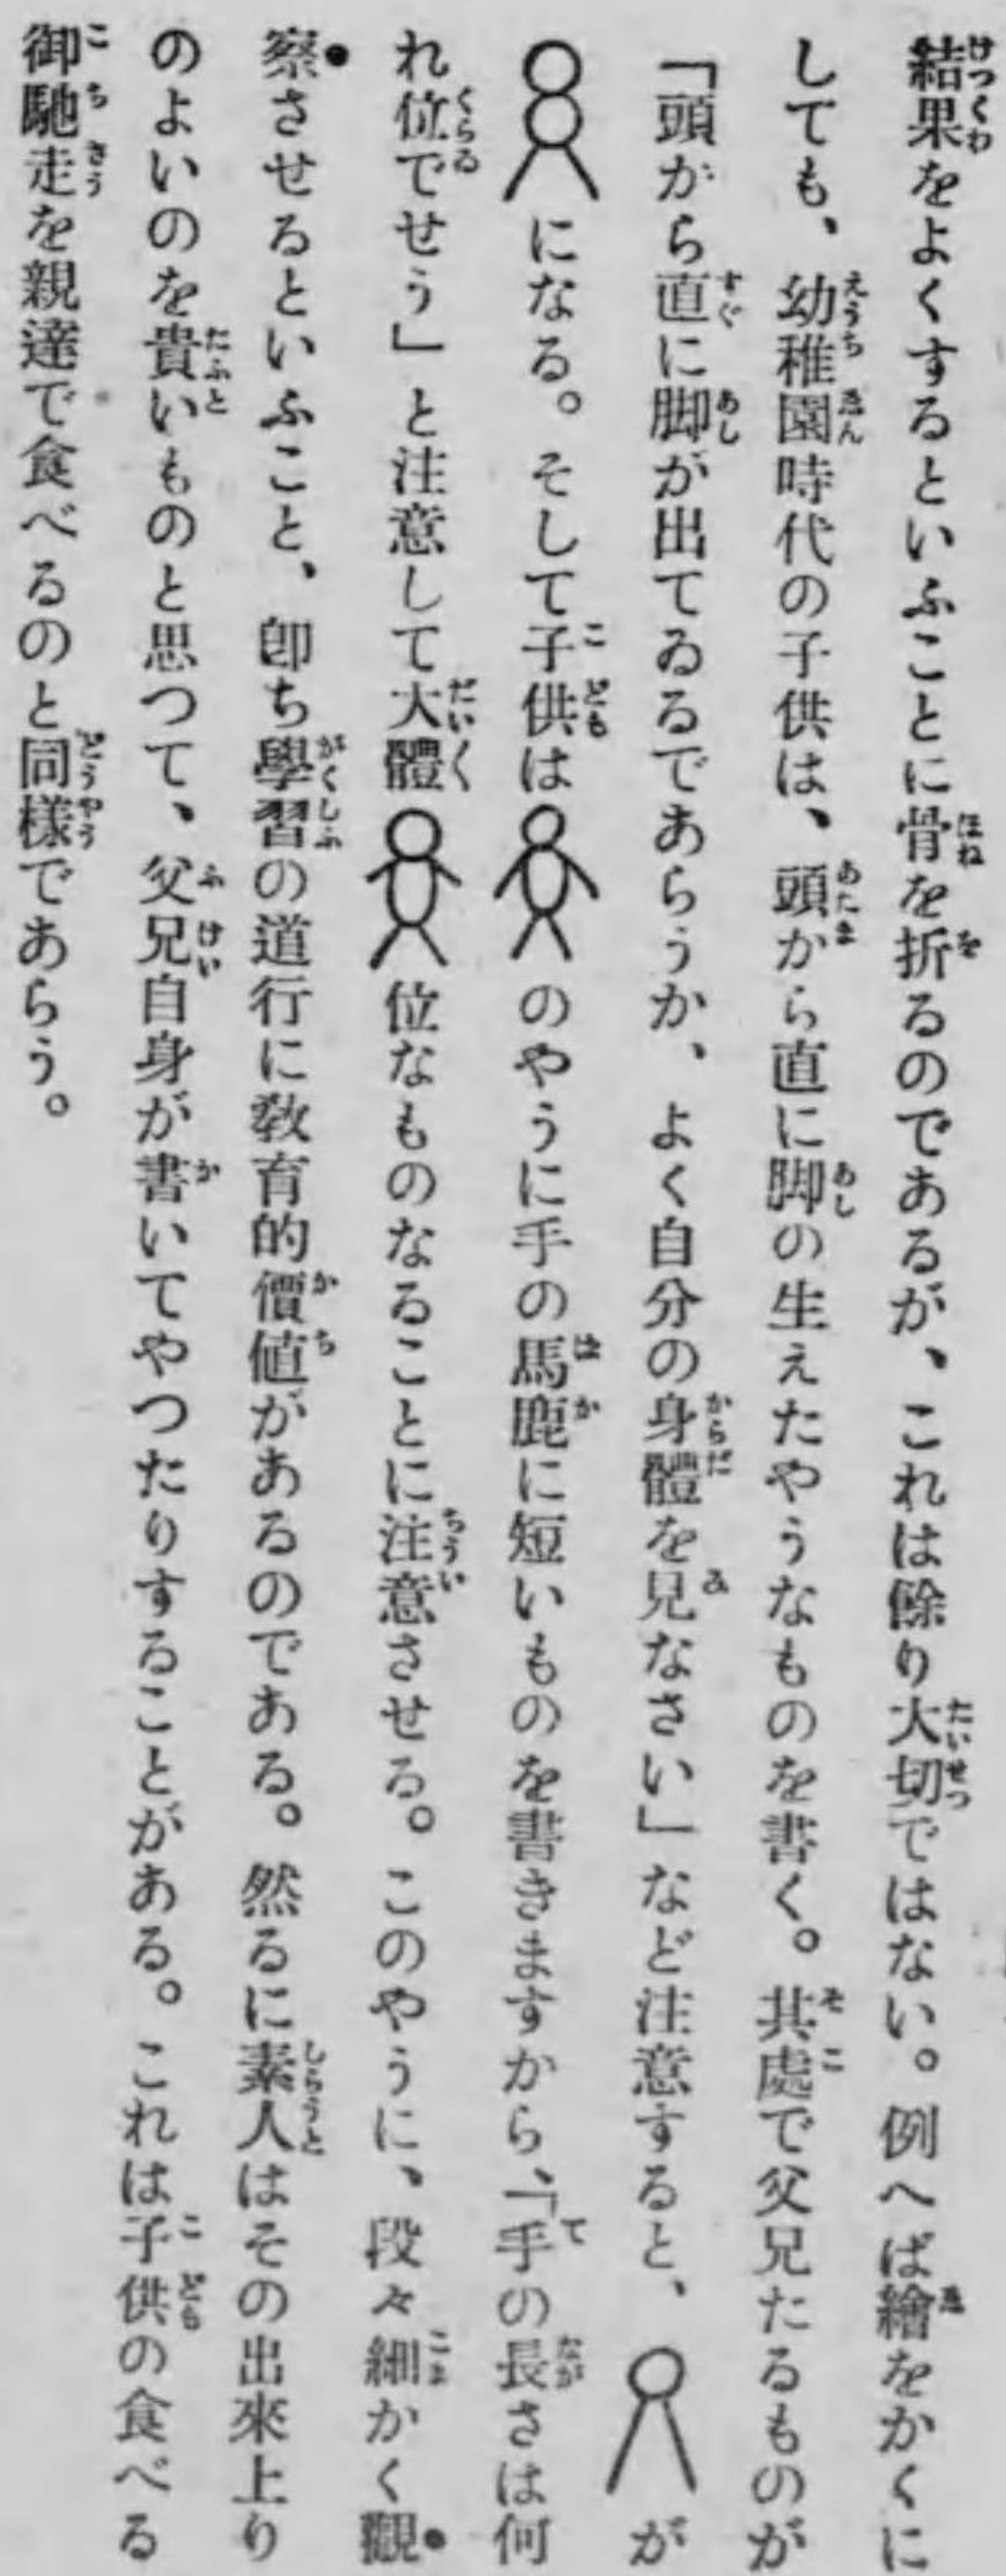 結果をよくするといふことに骨を折るのであるが、これは餘り大切ではない。例へば繪をかくに
しても、幼稚園時代の子供は、頭から直に脚の生えたやうなものを書く。共處で父兄たるものが
「頭から直に脚が出てゐるであらうか、よく自分の身體を見なさい」など注意すると、が
になる。そして子供はのやうに手の馬鹿に短いものを書きますから、「手の長さは何
れ位でせう」と注意して大體位なもののなることに注意させる。このやうに、段々細かく觀
察させるといふこと、卽ち學習の道行に敎育的價値があるのである。然るに素人はその出來上り
のよいのを貴いものと思つて、父兄自身が書いてやつたりすることがある。これは子供の食べる
御馳走を親達で食べるのと同樣であらう。